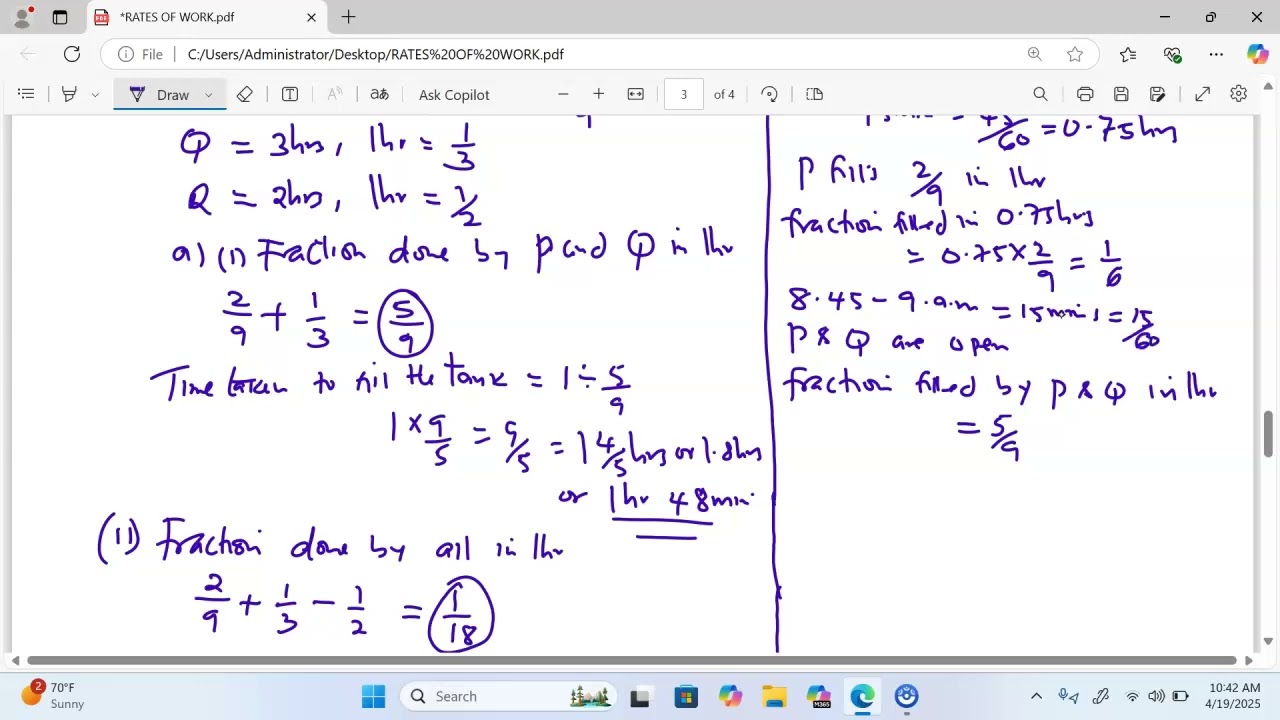 *RATES OF WORK.pdf
File
C:/Users/Administrator/Desktop/RATES%20OF%20WORK.pdf
Draw
Ask Copilot
3
of 4
Q = 3hrs, 1hr = 1/3
R = 2hrs, 1hr = 1/2
a) (i) Fraction done by P and Q in 1hr
2/9 + 1/3 = 5/9
Time taken to fill the tank = 1 ÷ 5/9
1 × 9/5 = 9/5 = 1 4/5 hrs or 1.8hrs
or 1hr 48min
(ii) Fraction done by all in 1hr
2/9 + 1/3 - 1/2 = 1/18
45/60 = 0.75hrs
P fills 2/9 in 1hr
fraction filled in 0.75hrs
= 0.75 × 2/9 = 1/6
8.45 - 9.a.m = 15mins = 15/60
P & Q are open
fraction filled by P & Q in 1hr
= 5/9
2
70°F
Sunny
Search
M365
10:42 AM
4/19/2025